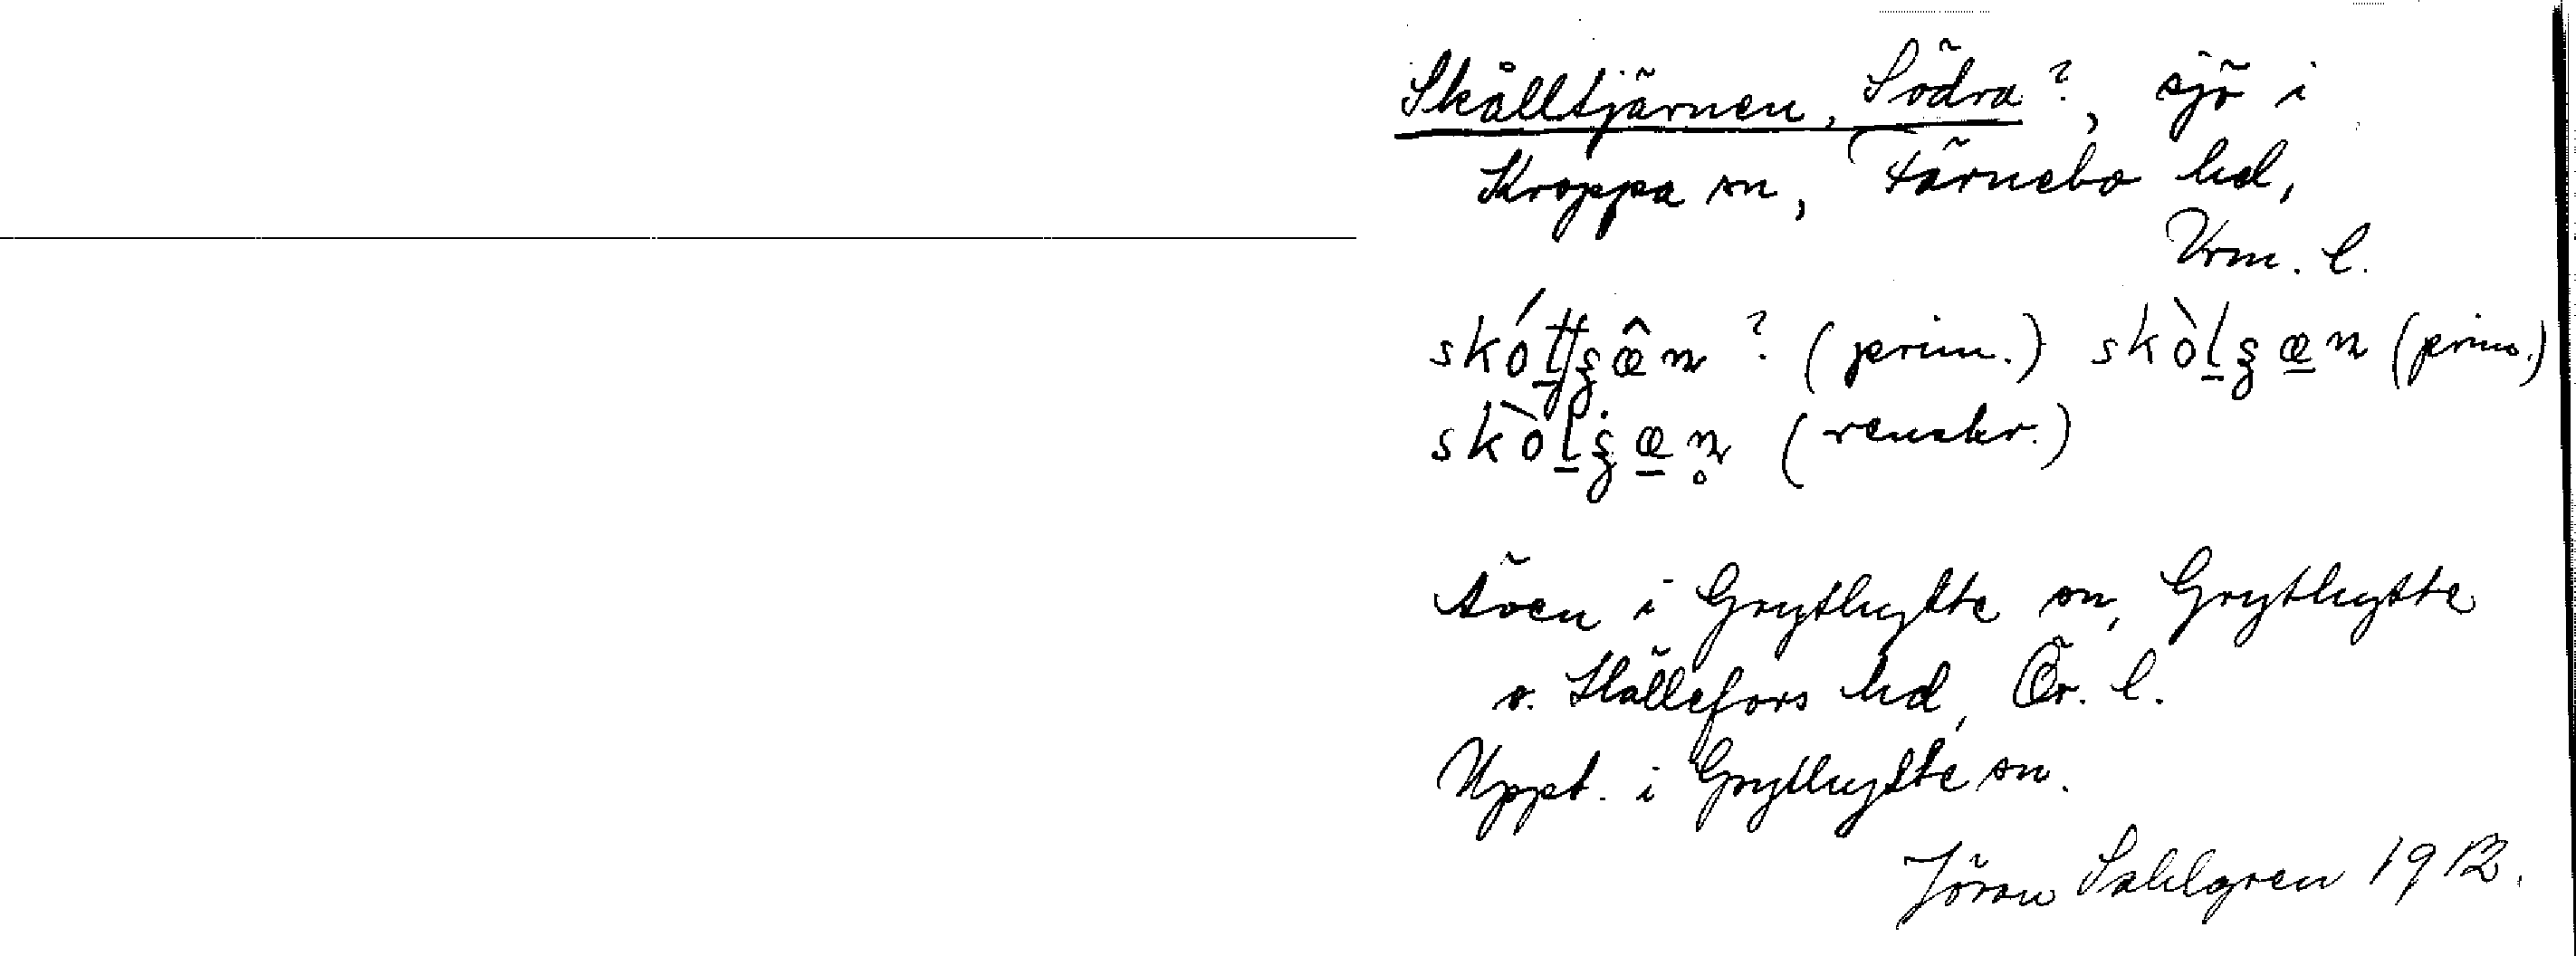 Skålltjärnen, Södra?, sjö i
Kroppa sn, Färnebo hd,
Vrm. l.
(prim.) (prim.)
(renskr.)
Även i Grythytte sn, Grythytte
o. Hällefors hd, Ör. l.
Uppt. i Grythytte sn.
Jöran Sahlgren 1912.